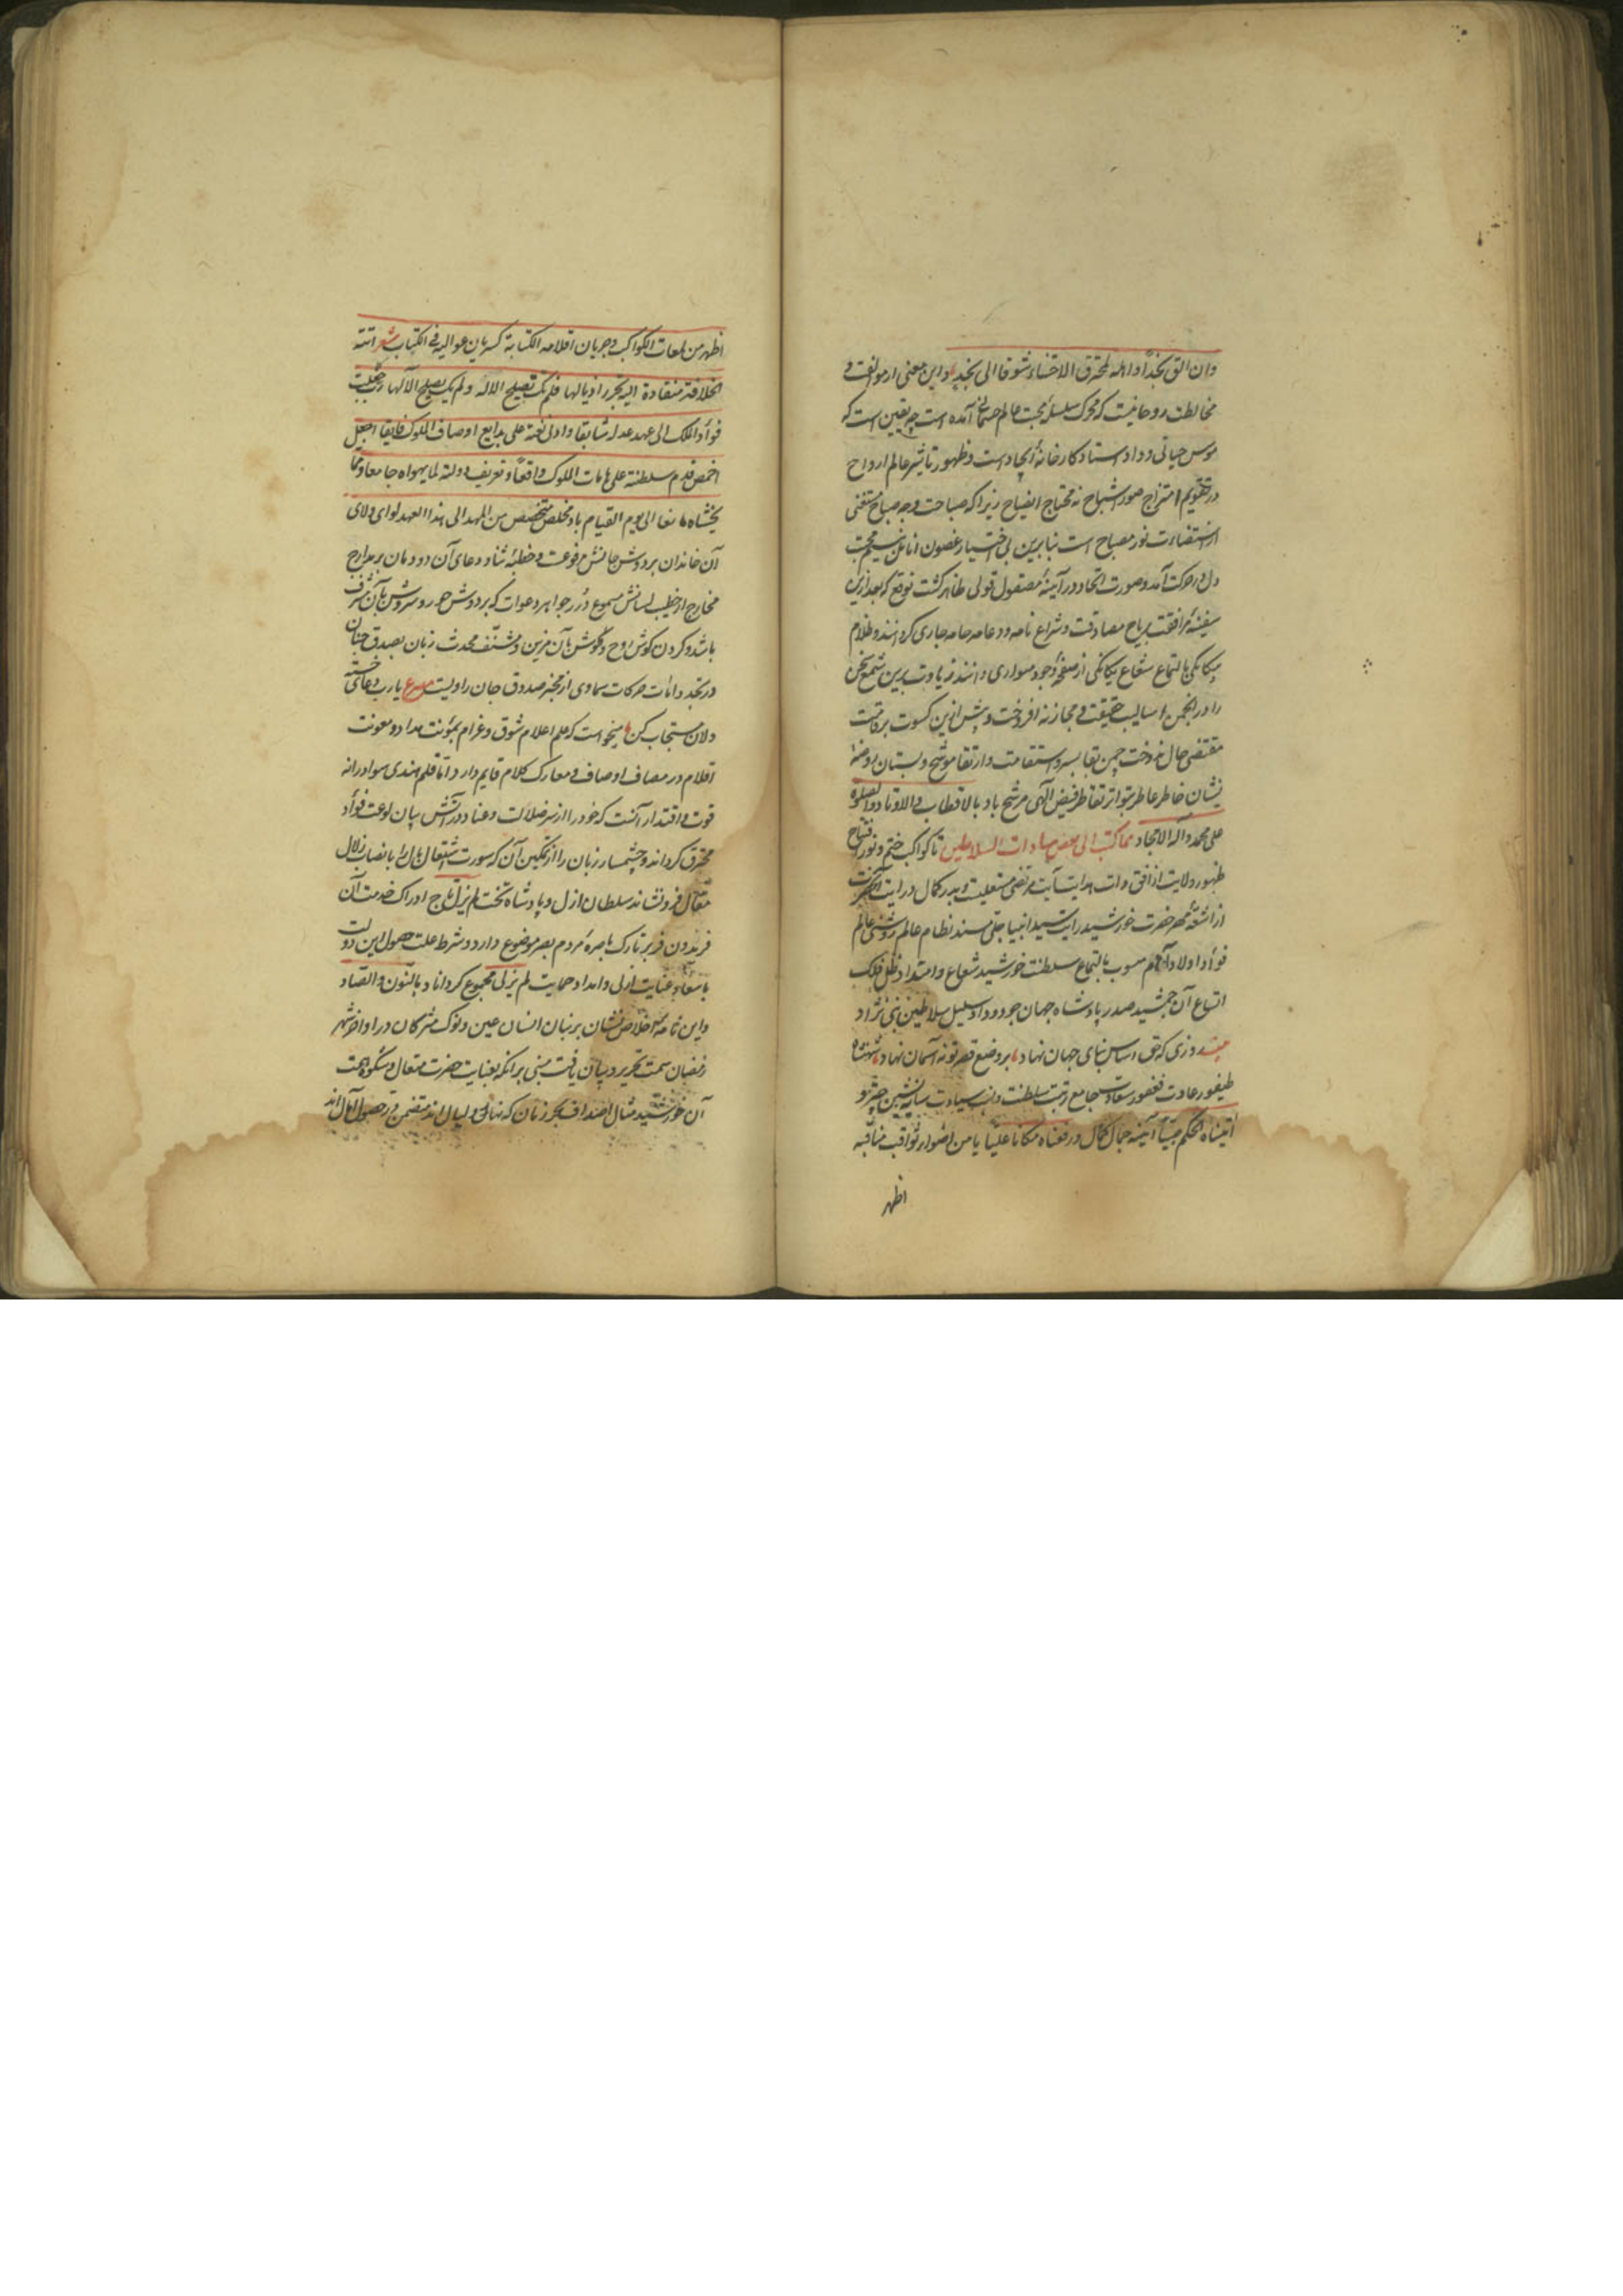 وان الق نجدًا و اهله محترق الاحشاء شوقا الی نجد و این معنی از موالفت و
مخالطت روحانیت که محرک سلسلهٔ محبت عالم جسمانی آمده است چه یقین است که
حیاتی و داد استاد کارخانهٔ ایجادست و ظهور تاثیر عالم ارواح
در تقویم امتزاج صور اشباح نه محتاج ایضاح زیرا که صباحت وجه صباح مستغنی
از استضاءت نور مصباح است بنابرین بی اختیار غصون انامل بنسیم محبت
دل در حرکت آمد و صورت اتحاد در آینهٔ مصقول قولی ظاهر کشت توقع که بعد ازین
سفینهٔ مرافقت بریاح مصادقت و شراع نامه و دعامه خامه جاری کردانند و ظلام
بیکانکی بالتماع شعاع یکانکی از صفحهٔ وجود متواری دانند زیادت برین شمع سخن
را در انجمن اسالیب حقیقت و مجاز نه افروخت و پیش ازین کسوت بر قامت
مقتضی حال ندوخت چمن بقا بسرو استقامت و ارتقا موشح و بستان روضهٔ
نشان خاطر عاطر بتواتر تقاطر فیض الهی مرشح باد بالاقطاب و الاوتاد و الصلوة
علی محمد و آله الامجاد مما کتب الی بعض سادات السلاطین تا کواکب ختم و نور افتتاح
ظهور ولایت از افق ذات هدایت آیت مرتضی مشعلیست و بدر کمال در رایت آنحضرت
از اشعهٔ مهر حضرت خورشید رایت سید انبیا جلی مسند نظام عالم و روشنی عالم
فؤاد اولاد آدم منسوب بالتماع سلطنت خورشید شعاع و امتداد ظل فلک
اتساع آن جمشید صدر پادشاه جهان جود و داد سلیل سلاطین نبی نژاد
بیت روزی که حق اساس بنای جهان نهاد بر وضع قصر تو نه آسمان نهاد شهنشاه
طیفور عادت فغفور سعادت جامع رتبت سلطنت و نسب سیادت سایه نشین چتر و
آتیناه الحکم صبیًا آینه جمال کمال و رفعناه مکانا علیًا یا من اضواء ثواقب مناقبه
اظهر
اظهر من لمعات الکواکب و جریان اقلامه الکتابة کسریان عوالیه فی الکتاب شعر اتته
الخلافة منقادة الیه تجرر اذیالها فلم تک تصلح الا له و لم یک یصلح الا لها رب کما جعلت
فؤاد الملک الی عهد عدله شایقا و ادنی نعته علی بدایع اوصاف الملوک فایقا اجعل
اخمص قدم سلطنته علی هامات الملوک واقعًا و تعریف دولته لما یهواه جامعا و عما
یخشاه مانعا الی یوم القیام باد مخلص متخصص من المهد الی هذا العهد لوای ولای
آن خاندان بر دوش جانش مرفوعست و خطبهٔ ثنا و دعای آن دودمان بر مدارج
مخارج از خطیب لسانش مسموع درر جواهر دعوات که بر و دوش حور و سروش بآن مشرف
باشد و کردن کوش روح و کوش هآن مزین و مشنف محدث زبان بصدق جنان
در تجدد انات حرکات سماوی از مخبر صدوق جان راویست مصرع یارب دعای خستـ
دلان مستجاب کن میخواست که علم اعلام شوق و غرام بمؤنت مداد و معونت
اقلام در مصاف اوصاف و معارک کلام قایم دارد اما قلم هندی سواد را نه
قوت و اقتدار آنست که خود را از سر ضلالت و عناد در آتش بیان لوعت فؤاد
محترق کرداند و چشمسار زبان را از تمکین آن که سورت اشتعال بال را بانصباب زلال
مقال فرونشاند سلطان ازل و پادشاه تخت لم یزل تاج ادراک خدمت آن
فریدون فر بر تارک باصرهٔ مردم بصر موضوع دارد و شرط علت حصول این دولت
باسعاد عنایت ازلی و امداد حمایت لم یزلی مجموع کرداناد بالنون و الصاد
و این نامهٔ اخلاص نشان بر بنان انسان عین و نوک مژکان در اواخر شهر
رمضان سمت تحریر و بیان یافت مبنی بر انکه بعنایت حضرت متعال و شکوه همت
آن خورشید مثال اصداف بحر زمان که نهار و لیال اند متضمن درر حصول آمال اند